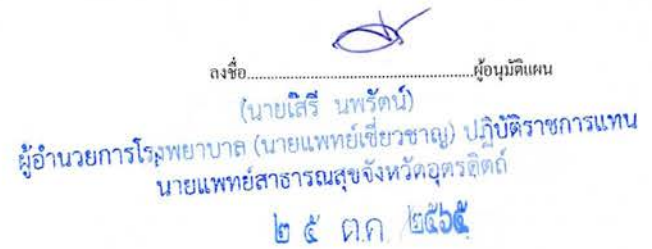 ลงชื่อ................................................................ผู้อนุมัติแผน
(นายเสรี นพรัตน์)
ผู้อำนวยการโรงพยาบาล (นายแพทย์เชี่ยวชาญ) ปฏิบัติราชการแทน
นายแพทย์สาธารณสุขจังหวัดอุตรดิตถ์
๒ ๕ ต.ค. ๒๕๖๕